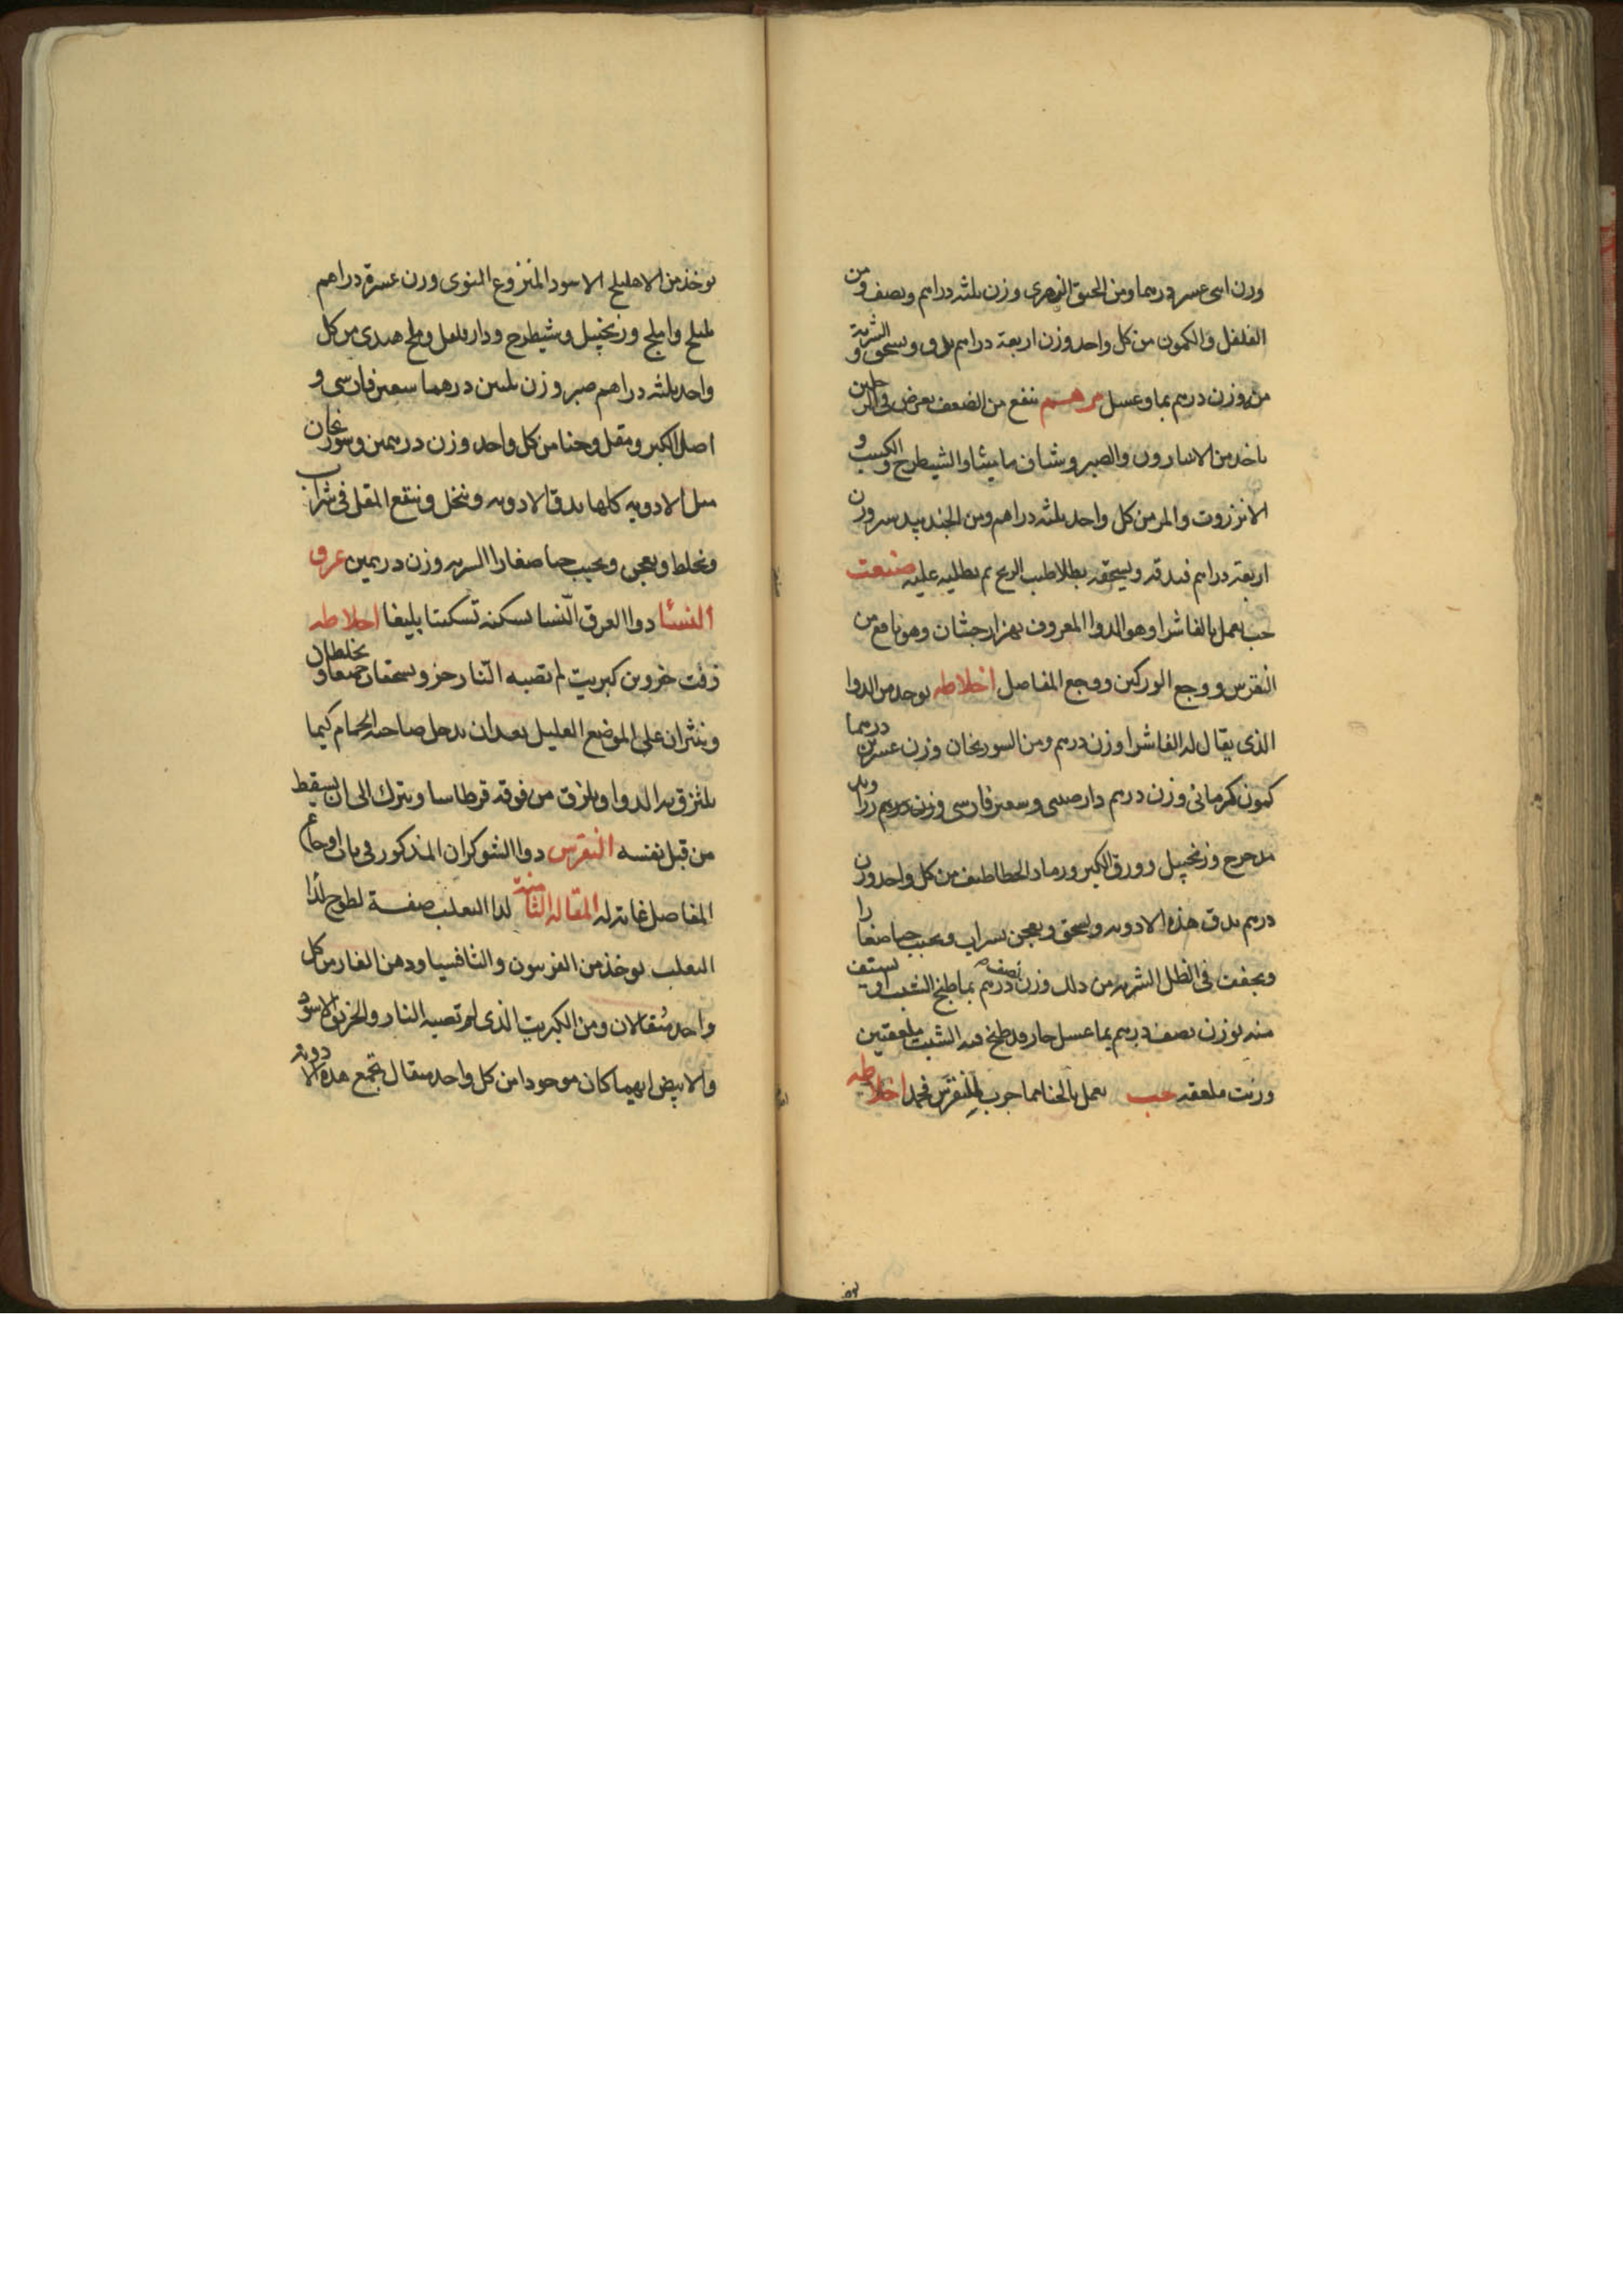 وزن اثنى عشر درهما ومن الحبق النهرى وزن ثلثه دراهم ونصف ومن
الفلفل والكمون من كل واحد وزن اربعة دراهم يدق ويسحق والشربة
منه وزن درهم بما وعسل مرهم ينفع من الضعف يعرض فى الرجلين
ياخذ من الاسارون والصبر وشياف ماميثا والشيطرج والكبيب و
الانزروت والمر من كل واحد ثلثه دراهم ومن الجندبيدستر وزن
اربعة دراهم فيدقه ويسحقه بطلا طيب الريح ثم يطليه عليه صنعت
حب يعمل بالفاشرا وهو الدوا المعروف بهزارجشان وهو نافع من
النقرس ووجع الوركين ووجع المفاصل اخلاطه يوخذ من الدوا
الذى يقال له الفاشرا وزن درهم ومن السورنجان وزن عشرين درهما
كمون كرمانى وزن درهم دارصينى وسعتر فارسى وزن درهم زراوند
مدحرج وزنجبيل وورق الكبر ورماد الخطاطيف من كل واحد وزن
درهم يدق هذه الادويه ويسحق ويعجن بشراب ويحبب حبا صغارا
ويجفف فى الظل الشربه من ذلك وزن نصف درهم بما طبخ الشبث او يستف
منه بوزن نصف درهم بما عسل حار وقد طبخ فيه الشبث ملعقتين
وزيت ملعقه حب يعمل بالحنا مما جرب للنقرس فحمد اخلاطه
يوخذ من الاهليلج الاسود المنزوع النوى وزن عشرة دراهم
بليلج واملج وزنجبيل وشيطرج ودارفلفل وملح هندى من كل
واحد ثلثه دراهم صبر وزن ثلثين درهما سعتر فارسى و
اصل الكبر ومقل وحنا من كل واحد وزن درهمين وسورنجان
مثل الادويه كلها يدق الادويه وينخل وينقع المقل فى شراب
ويخلط ويعجن ويحبب حبا صغارا الشربه وزن درهمين عرق
النسا دوا لعرق النسا يسكنه تسكينا بليغا اخلاطه
زفت جزوين كبريت لم تصبه النار جزو يسحقان جميعا ويخلطان
وينثران على الموضع العليل بعد ان يدخل صاحبه الحمام كيما
يلتزق به الدوا ويلزق من فوقه قرطاسا ويترك الى ان يسقط
من قبل نفسه النقرس دوا الشوكران المذكور فى باب اوجاع
المفاصل غاية له المقاله الثامنة لدا الثعلب صفة لطوخ لدا
الثعلب يوخذ من الفربيون والثافسيا ودهن الغار من كل
واحد مثقالان ومن الكبريت الذى لم تصبه النار والخربق الاسود
والابيض ايهما كان موجودا من كل واحد مثقال تجمع هذه الادويه